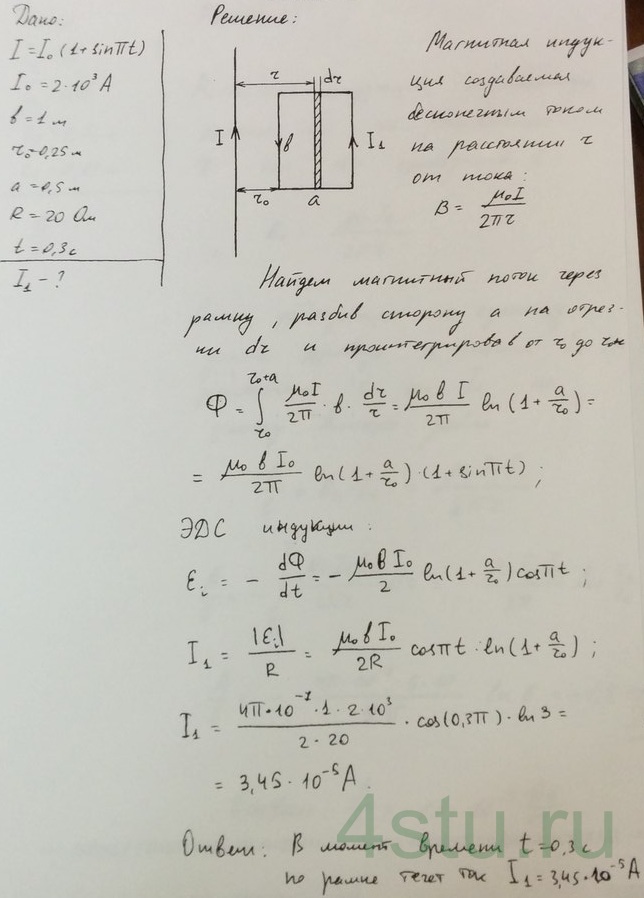 Дано:
I = I₀ (1 + sinπt)
I₀ = 2·10³ А
в = 1 м
r₀ = 0,25 м
a = 0,5 м
R = 20 Ом
t = 0,3 с
I₁ - ?
Решение:
r
dr
I
в
I₁
r₀
a
Магнитная индук-
ция создаваемая
бесконечным током
на расстоянии r
от тока:
B = μ₀I / 2πr
Найдем магнитный поток через
рамку, разбив сторону a на отрез-
ки dr и проинтегрировав от r₀ до r₀+a
Φ = ∫_{r₀}^{r₀+a} μ₀I/2π · в · dr/r = μ₀ в I/2π ln(1 + a/r₀) =
= μ₀ в I₀/2π ln(1 + a/r₀)·(1 + sinπt);
ЭДС индукции:
ℰᵢ = - dΦ/dt = - μ₀ в I₀/2 ln(1 + a/r₀) cosπt;
I₁ = |ℰᵢ|/R = μ₀ в I₀/2R cosπt · ln(1 + a/r₀);
I₁ = 4π·10⁻⁷·1·2·10³ / 2·20 · cos(0,3π) · ln 3 =
= 3,45·10⁻⁵ А.
Ответ: В момент времени t = 0,3 с
по рамке течет ток I₁ = 3,45·10⁻⁵ А
4stu.ru